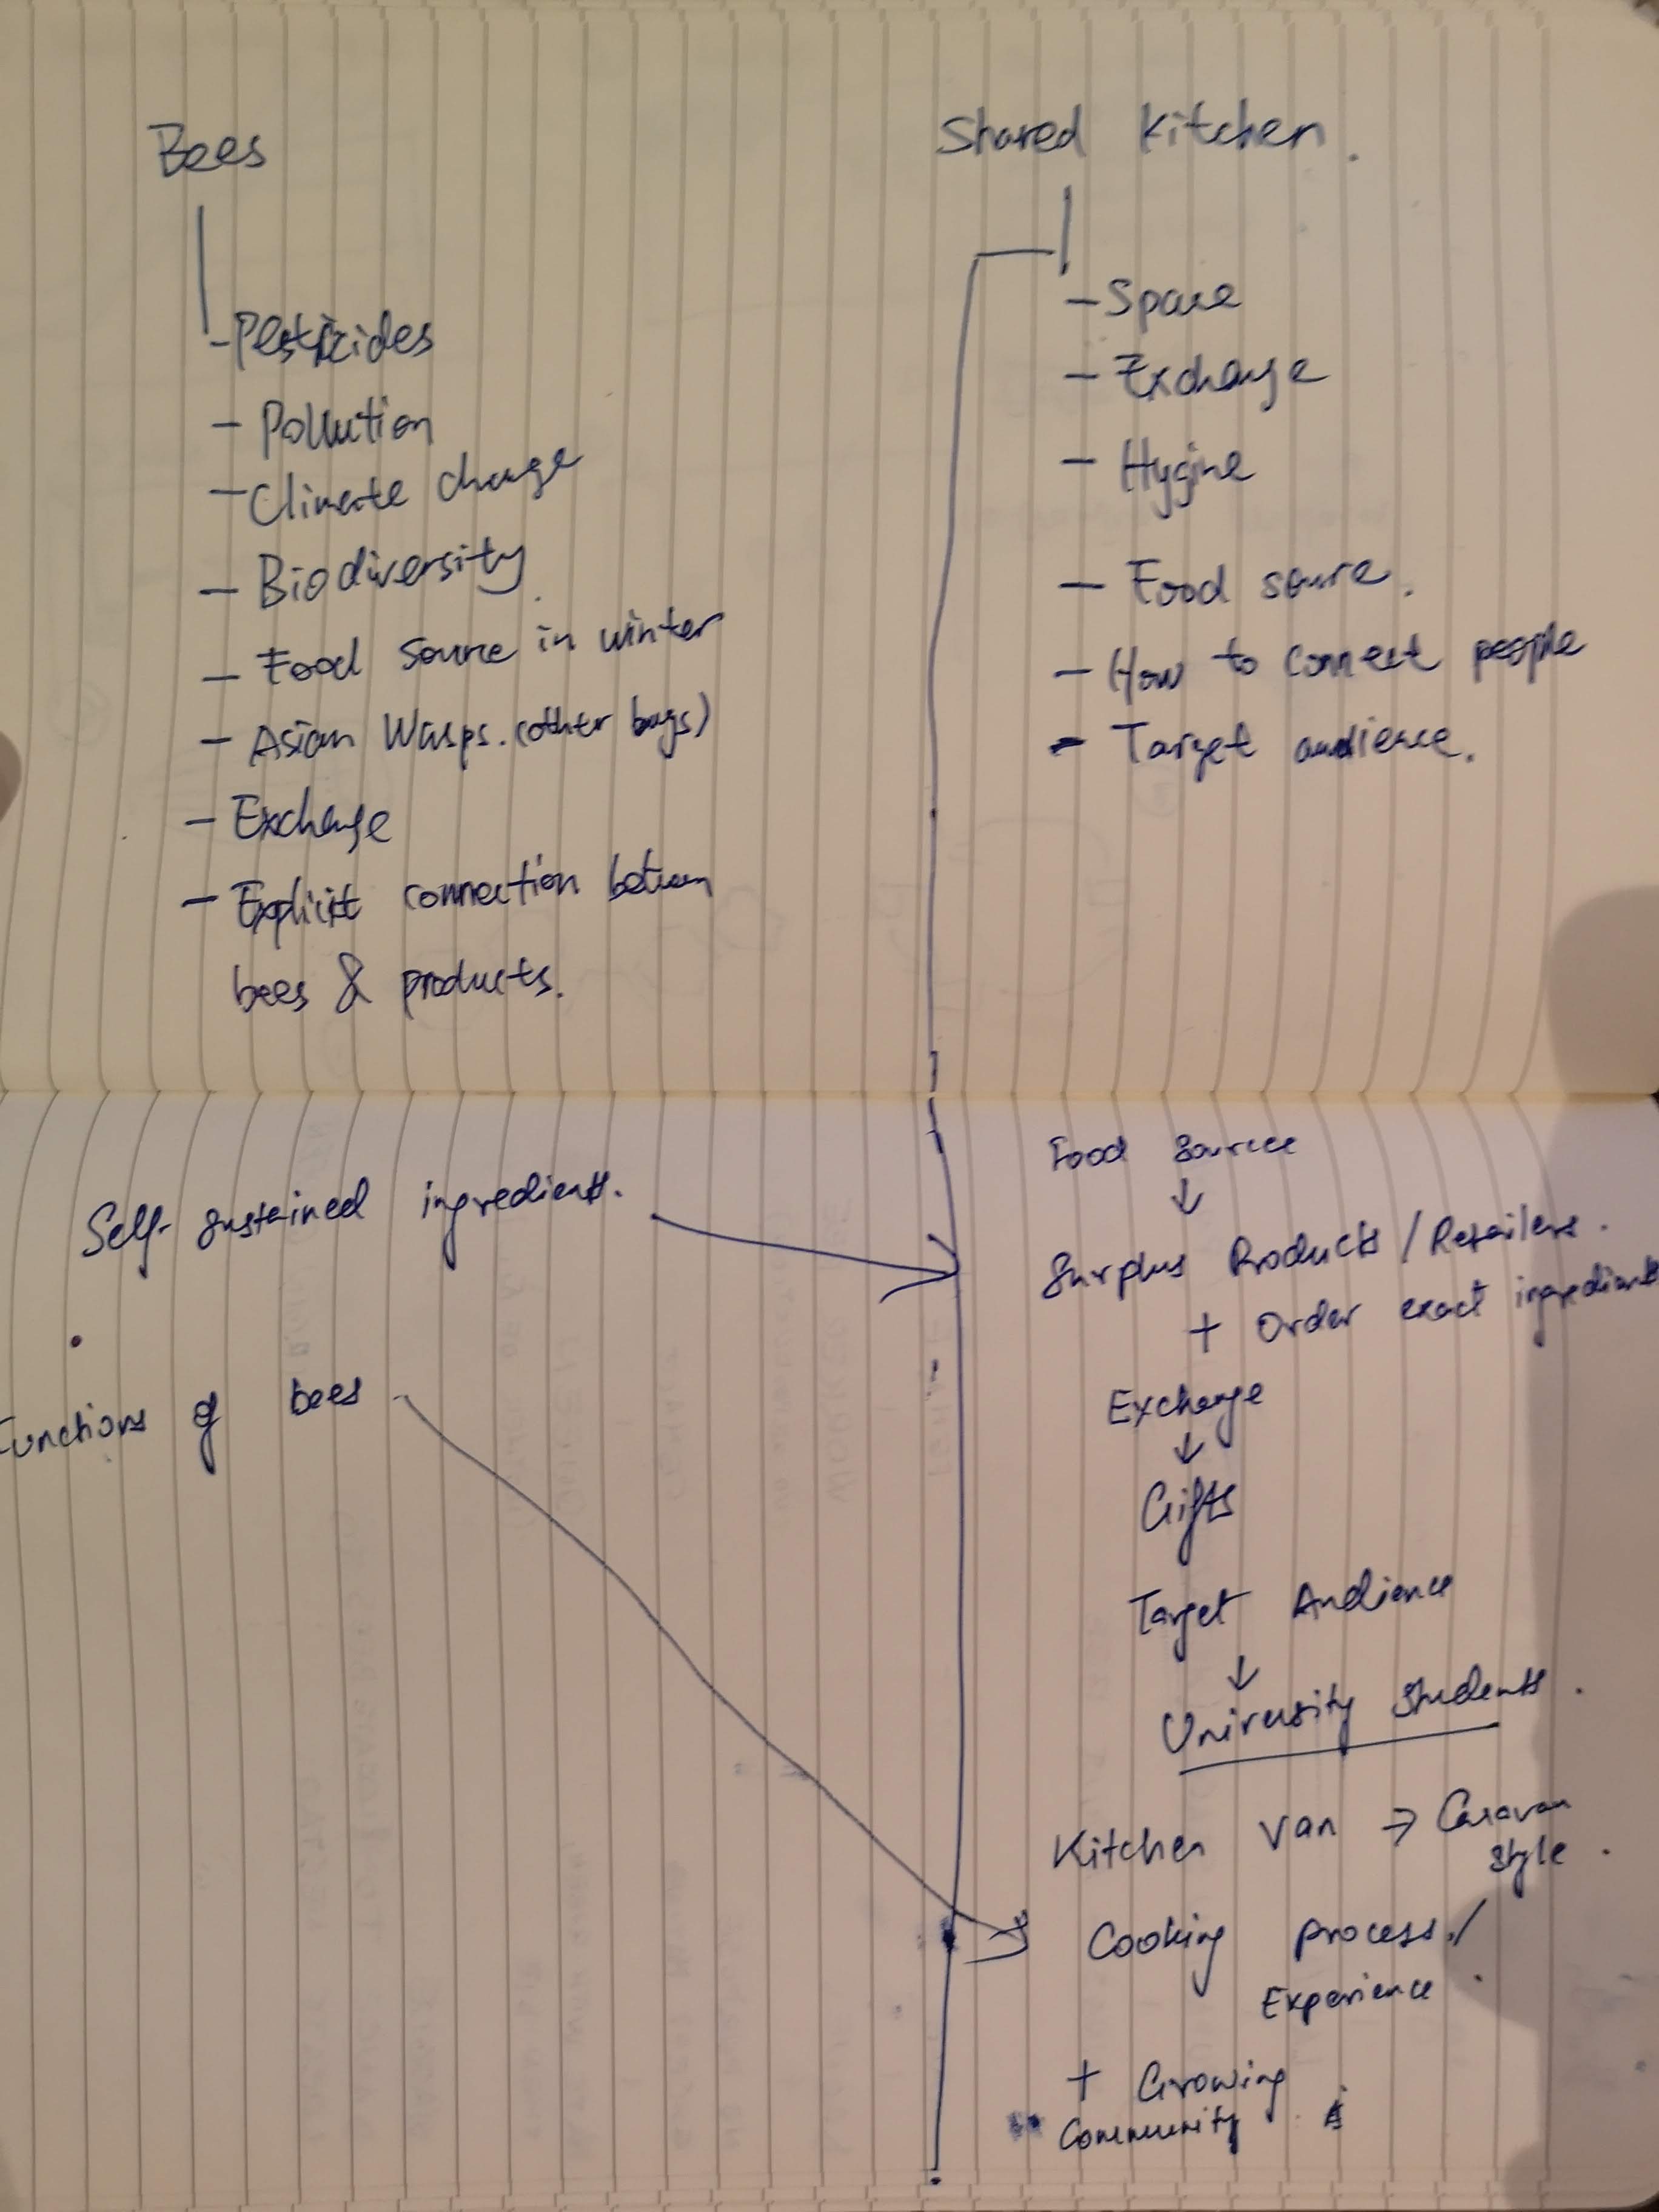 Bees
-Pesticides
- Pollution
- Climate change
- Biodiversity.
- Food source in winter
- Asian Wasps. (other bugs)
- Exchange
- Explicit connection between
bees & products.
Shared Kitchen.
- Space
- Exchange
- Hygine
- Food source.
- How to connect people
- Target audience.
Self-sustained ingredients.
Functions of bees
Food Source
↓
Surplus Products / Retailers.
+ Order exact ingredients
Exchange
↓
Gifts
Target Audience
↓
University Students.
Kitchen Van → Caravan
Style.
Cooking process. /
Experience.
+ Growing
Community.